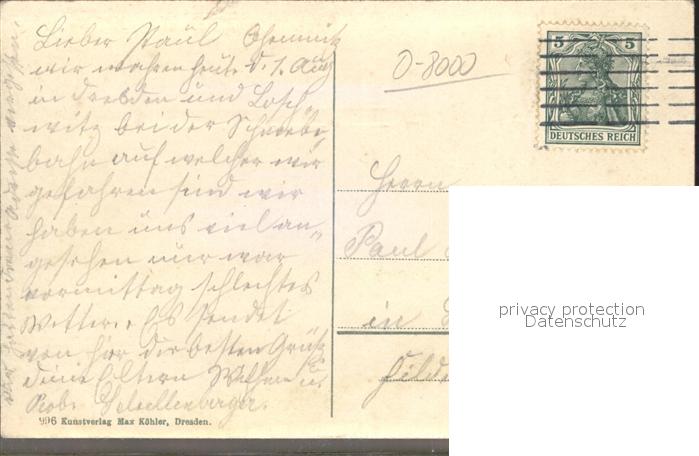 Lieber Paul Chemnitz
wir waren heute d. 1. Aug
in Dresden und Losch-
witz bei der Schwebe-
bahn auf welcher wir
gefahren sind wir
haben uns viel an-
gesehen nur war
vormittag schlechtes
Wetter. Es sendet
von hier die besten Grüße
deine Eltern Wilhelm u.
Schellenberger.
996 Kunstverlag Max Köhler, Dresden.
0-8000
5 5
DEUTSCHES REICH
Herrn
Paul
in
privacy protection
Datenschutz